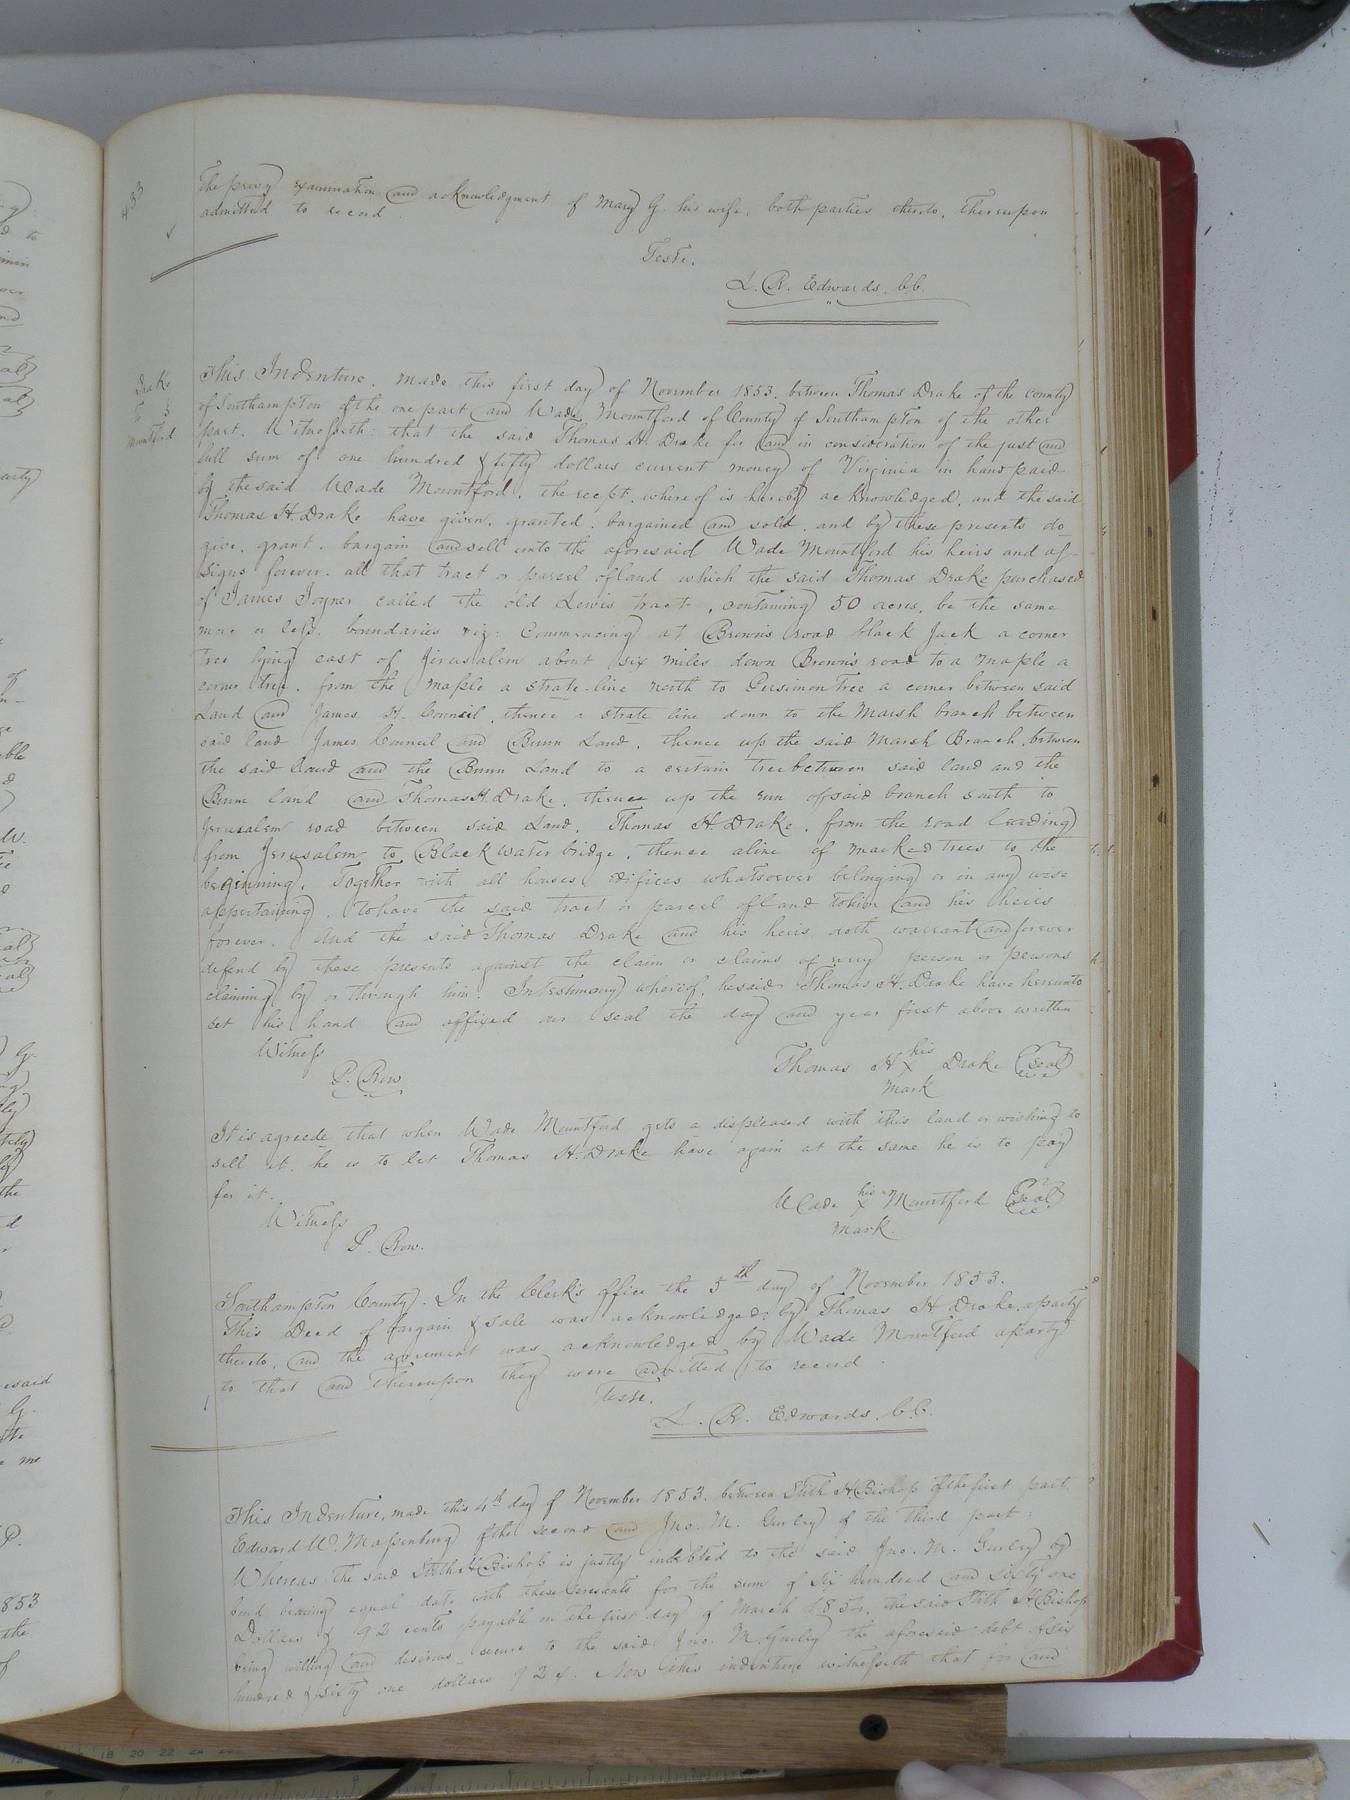 433
The privy examination and acknowledgment of Mary G. his wife, both parties thereto, thereupon
admitted to record.
Teste.
L. R. Edwards. C.C.
Drake
To
Mountford
This Indenture, made this first day of November 1853. between Thomas Drake of the county
of Southampton of the one part and Wade Mountford of County of Southampton of the other
part. Witnesseth: that the said Thomas H. Drake for and in consideration of the just and
full sum of one hundred & fifty dollars current money of Virginia in hand paid
by the said Wade Mountford, the recept. where of is hereby acknowledged, and the said
Thomas H. Drake have given, granted, bargained and sold, and by these presents do
give, grant, bargain and sell unto the aforesaid Wade Mountford his heirs and as-
signs forever. all that tract or parcel of land which the said Thomas Drake purchased
of James Joyner called the old Lewis tract, containing 50 acres, be the same
more or less. boundaries viz: Commencing at Brown's road black Jack a corner
tree lying east of Jerusalem about six miles down Brown's road to a maple a
corner tree, from the maple a strate line north to Persimon Tree a corner between said
Land and James H. Council, thence a strate line down to the Marsh branch between
said land James Council and Bunn Land, thence up the said Marsh Branch, between
the said land and the Bunn Land to a certain tree between said land and the
Bunn land and Thomas H. Drake, thence up the run of said branch south to
Jerusalem road between said Land, Thomas H. Drake, from the road leading
from Jerusalem to Black water bridge, thence aline of marked trees to the
beginning. Together with all houses edifices whatsoever belonging or in any wise
appertaining. To have the said tract or parcel of land to him and his heirs
forever. And the said Thomas Drake and his heirs doth warrant and forever
defend by these presents against the claim or claims of every person or persons
claiming by or through him. In Testimony whereof, he said Thomas H. Drake have hereunto
set his hand and affixed our seal the day and year first above written
Witness
P. Row
Thomas H his x mark Drake Seal
It is agreede that when Wade Mountford gets a displeased with this land or wishing to
sell it, he is to let Thomas H. Drake have again at the same he is to pay
for it.
Wade his x mark Mountford Seal
Witness
P. Row.
Southampton County. In the Clerk's office the 5th day of November 1853.
This Deed of bargain & sale was acknowledged by Thomas H Drake, a party
thereto, and the agreement was acknowledged by Wade Mountford aparty
to that and thereupon they were admitted to record.
Teste.
L. R. Edwards. C.C.
This Indenture, made this 4th day of November 1853. between Stith H Bishop of the first part,
Edward W. Massenburg of the second and Jno. M. Gurley of the third part:
Whereas the said Stith H Bishop is justly indebted to the said Jno. M. Gurley by
bond bearing equal date with these presents for the sum of six hundred and sixty one
Dollars & 92 cents payable on the first day of March 1854, the said Stith H Bishop
being willing and desirous secure to the said Jno. M. Gurley the aforesaid debt of six
hundred & sixty one dollars 92 c. Now this indenture witnesseth that for and